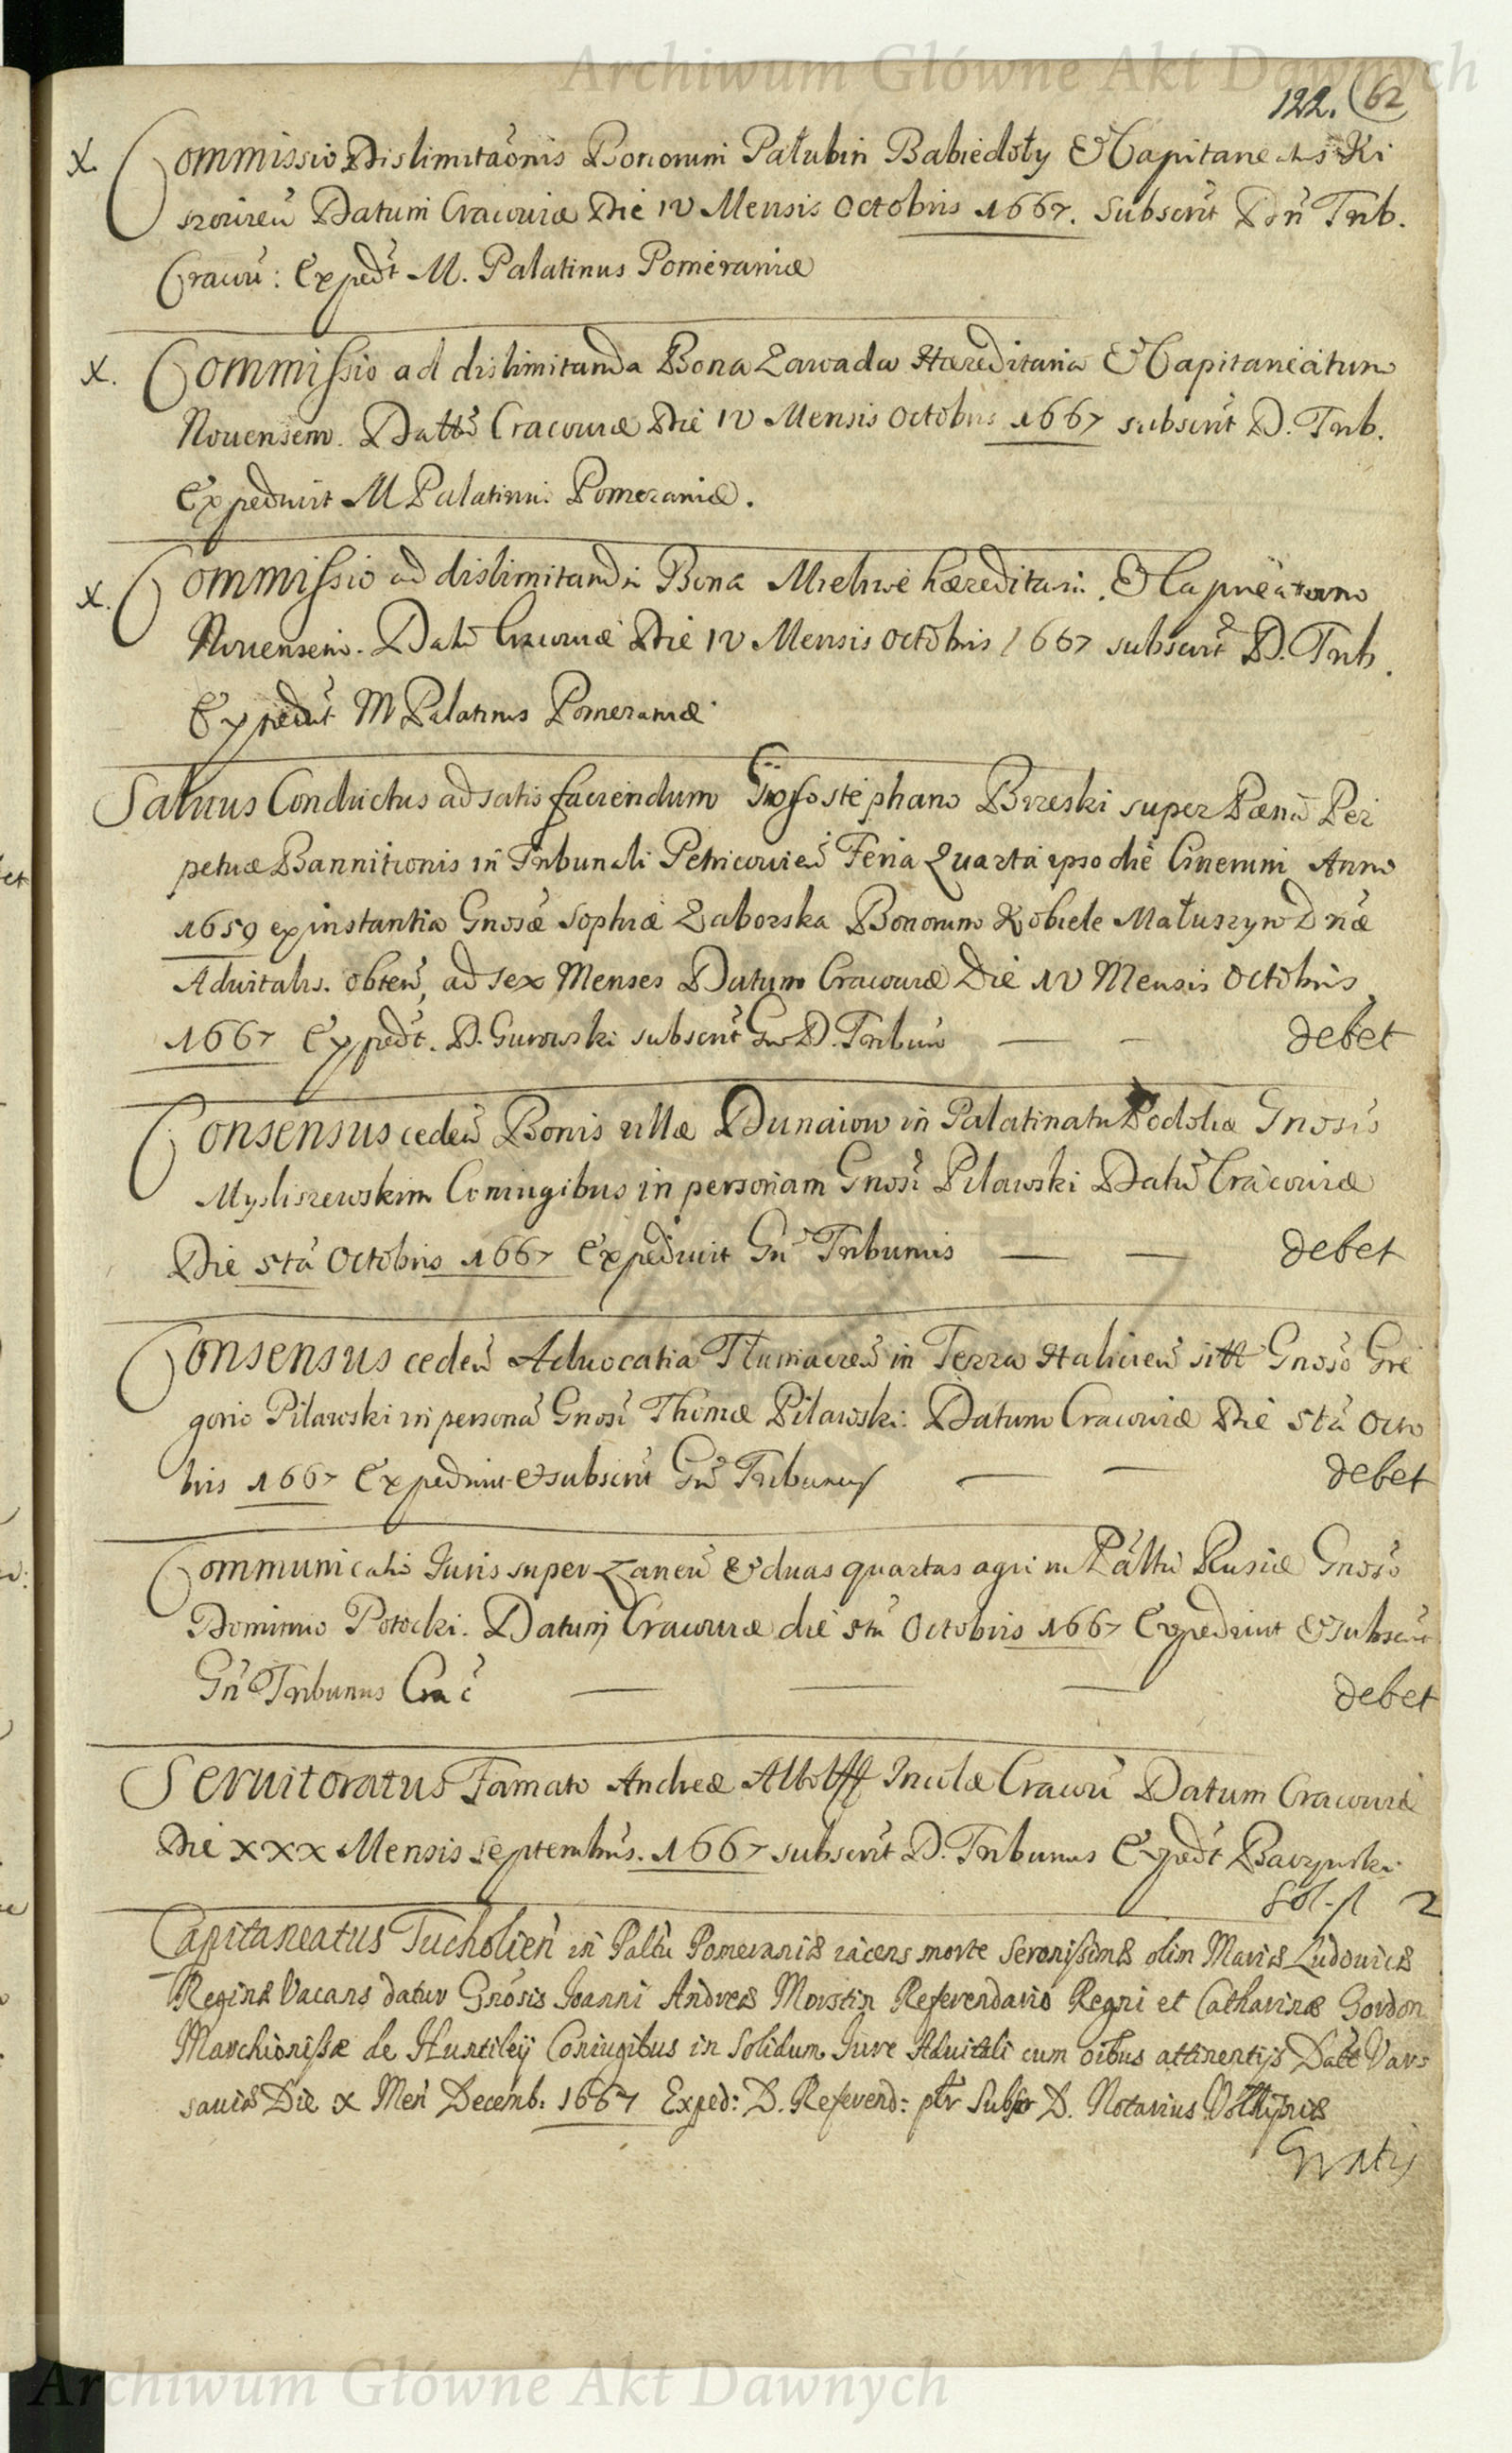 Archiwum Główne Akt Dawnych
122. 62
x. Commissio Dislimitaōnis Bonorum Pałubin Babiedoły & Capitaneatus Ki
szovień Datum Cracoviæ Die IV Mensis Octobris 1667. Subscrīt Dn̄ Trib.
Cracoū: Expedt M. Palatinus Pomeraniæ
x. Commissio ad dislimitanda Bona Zawada Hæreditaria & Capitaneatum
Novensem. Dattū Cracoviæ Die IV Mensis Octobris 1667 subscrīt D. Trib.
Expedivit M Palatinus Pomeraniæ.
x. Commissio ad dislimitanda Bona Mielwe hæreditaria & Capnēatum
Novensem. Datū Cracoviæ Die IV Mensis Octobris 1667 subscrīt D. Trib.
Expedīt M Palatinus Pomeraniæ
Salvus Conductus ad satis faciendum Stephano Brzeski super Pænā Per
petuæ Bannitionis in Tribunali Petricovień Feria Quarta ipso die Cinerum Anno
1659 ex instantia Gnosæ Sophiæ Zaborska Bonorum Kobiele Małuszyn Dnæ
Advitalis. obteń, ad sex Menses Datum Cracoviæ Die IV Mensis Octobris
1667 Expedt. D. Gurowski subscrīt Gn̄ D. Tribuń — — debet
Consensus cedeń Bonis villæ Dunaiow in Palatinatu Podoliæ Gnosis
Mysliszewskim Coniugibus in personam Gnosi Pilawski Datū Cracoviæ
Die 5tā Octobris 1667 Expedivit Gn̄ Tribunus — — debet
Consensus cedeń Advocatia Tłumacień in Terra Halicień sitt Gnoso Gre
gorio Pilawski in personā Gnosi Thomæ Pilawski. Datum Cracoviæ Die 5tā Octo
bris 1667 Expedivit & subscrīt Gn̄ Tribunus — — debet
Communicatio Iuris super Laneū & duas quartas agri in Pāltū Rusiæ Gnoso
Dominio Potocki. Datum Cracoviæ die 5tā Octobris 1667 Expedivit & subscrīt
Gn̄ Tribunus Crac̄ — — — debet
Servitoratus Famato Andreæ Incolæ Cracoū Datum Cracoviæ
Die XXX Mensis Septembris. 1667 subscrīt D. Tribunus Expedt Baczynski
Sol. 2
Capitaneatus Tucholień in Paltū Pomeraniæ iacens morte Serenissimæ olim Mariæ Ludovicæ
Reginæ Vacans datur Gnosis Ioanni Andreæ Morstin Referendario Regni et Catharinæ Gordon
Marchionissæ de Huntiley Coniugibus in Solidum Iure Advitali cum oībus attinentijs Datt Vars
saviæ Die X Men̄ Decemb: 1667 Exped: D. Referend: ptr Subscr D. Notarius Volhyniæ
Gratis
Archiwum Główne Akt Dawnych